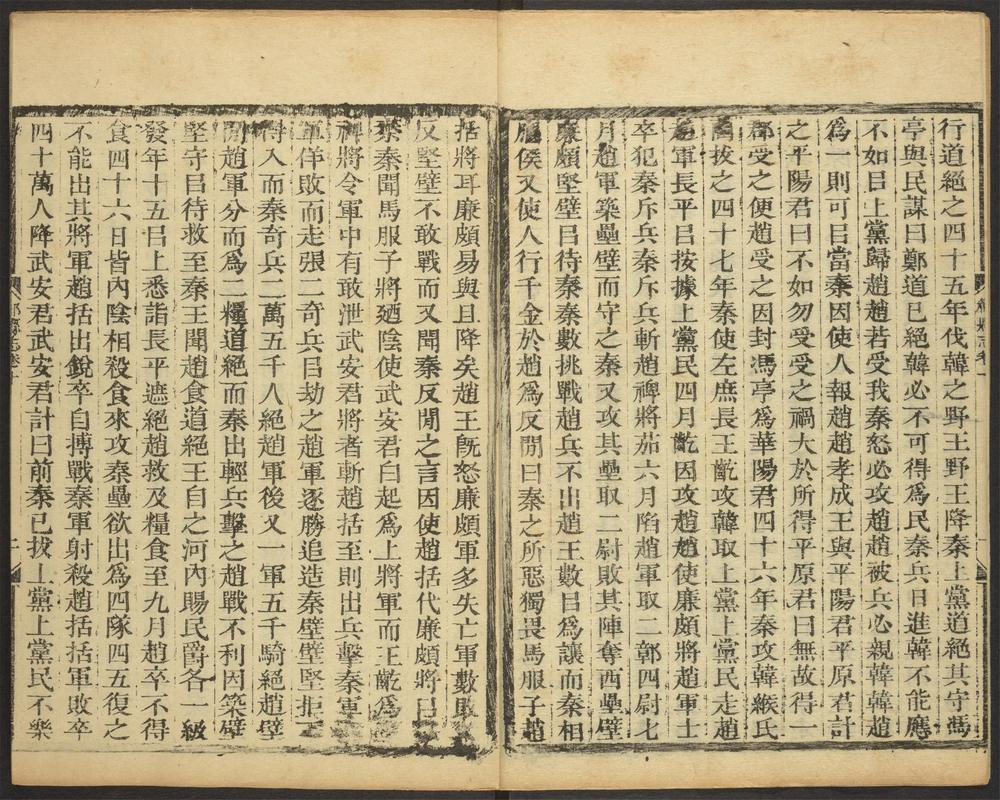 行道絕之四十五年伐韓之野王野王降秦上黨道絕其守馮
亭與民謀曰鄭道已絕韓必不可得爲民秦兵日進韓不能應
不如㠯上黨歸趙趙若受我秦怒必攻趙趙被兵必親韓韓趙
爲一則可㠯當秦因使人報趙趙孝成王與平陽君平原君計
之平陽君曰不如勿受受之禍大於所得平原君曰無故得一
郡受之便趙受之因封馮亭爲華陽君四十六年秦攻韓緱氏
藺拔之四十七年秦使左庶長王齕攻韓取上黨上黨民走趙
趙軍長平㠯按據上黨民四月齕因攻趙趙使廉頗將趙軍士
卒犯秦斥兵秦斥兵斬趙裨將茄六月陷趙軍取二鄣四尉七
月趙軍築壘壁而守之秦又攻其壘取二尉敗其陣奪西壘壁
廉頗堅壁㠯待秦秦數挑戰趙兵不出趙王數㠯爲讓而秦相
應侯又使人行千金於趙爲反閒曰秦之所惡獨畏馬服子趙
括將耳廉頗易與且降矣趙王旣怒廉頗軍多失亡軍數敗
反堅壁不敢戰而又聞秦反閒之言因使趙括代廉頗將㠯
擊秦秦聞馬服子將廼陰使武安君白起爲上將軍而王齕爲
裨將令軍中有敢泄武安君將者斬趙括至則出兵擊秦軍
軍佯敗而走張二奇兵㠯劫之趙軍逐勝追造秦壁壁堅拒不
得入而秦奇兵二萬五千人絕趙軍後又一軍五千騎絕趙壁
閒趙軍分而爲二糧道絕而秦出輕兵擊之趙戰不利因築壁
堅守㠯待救至秦王聞趙食道絕王自之河內賜民爵各一級
發年十五㠯上悉詣長平遮絕趙救及糧食至九月趙卒不得
食四十六日皆內陰相殺食來攻秦壘欲出爲四隊四五復之
不能出其將軍趙括出銳卒自搏戰秦軍射殺趙括括軍敗卒
四十萬人降武安君武安君計曰前秦已拔上黨上黨民不樂
二